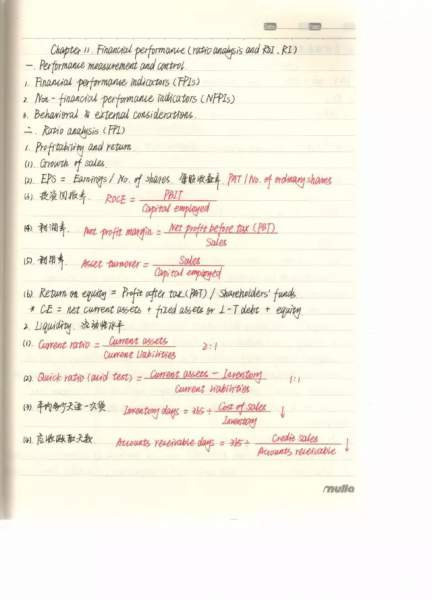 Chapter 11. Financial performance (ratio analysis and ROI, RI)
一. Performance measurement and control
1. Financial performance indicators (FPIs)
2. Non-financial performance indicators (NFPIs)
3. Behavioral & external considerations.
二. Ratio analysis (FPI)
1. Profitability and return
(1). Growth of sales.
(2). EPS = Earnings / No. of shares. 每股收益率. PAT / No. of ordinary shares
(3). 投资回报率. ROCE = PBIT / Capital employed
(4). 利润率. Net profit margin = Net profit before tax (PBT) / Sales
(5). 利用率. Asset turnover = Sales / Capital employed
(6). Return on equity = Profit after tax (PAT) / Shareholders' funds.
* CE = net current assets + fixed assets or L-T debt + equity.
2. Liquidity.
(1). Current ratio = Current assets / Current liabilities 2:1
(2). Quick ratio (acid test) = Current assets - Inventory / Current liabilities 1:1
(3). 平均多少天进一次货 Inventory days = 365 ÷ Cost of sales / Inventory ↓
(4). 应收账款天数. Accounts receivable days = 365 ÷ Credit sales / Accounts receivable ↓